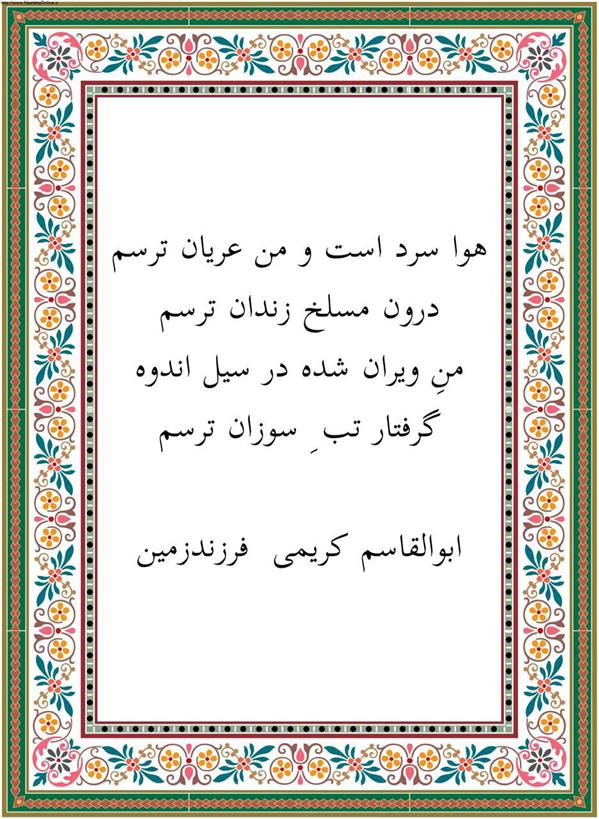 هوا سرد است و من عریان ترسم
درون مسلخ زندان ترسم
منِ ویران شده در سیل اندوه
گرفتار تب ِ سوزان ترسم
ابوالقاسم کریمی فرزندزمین